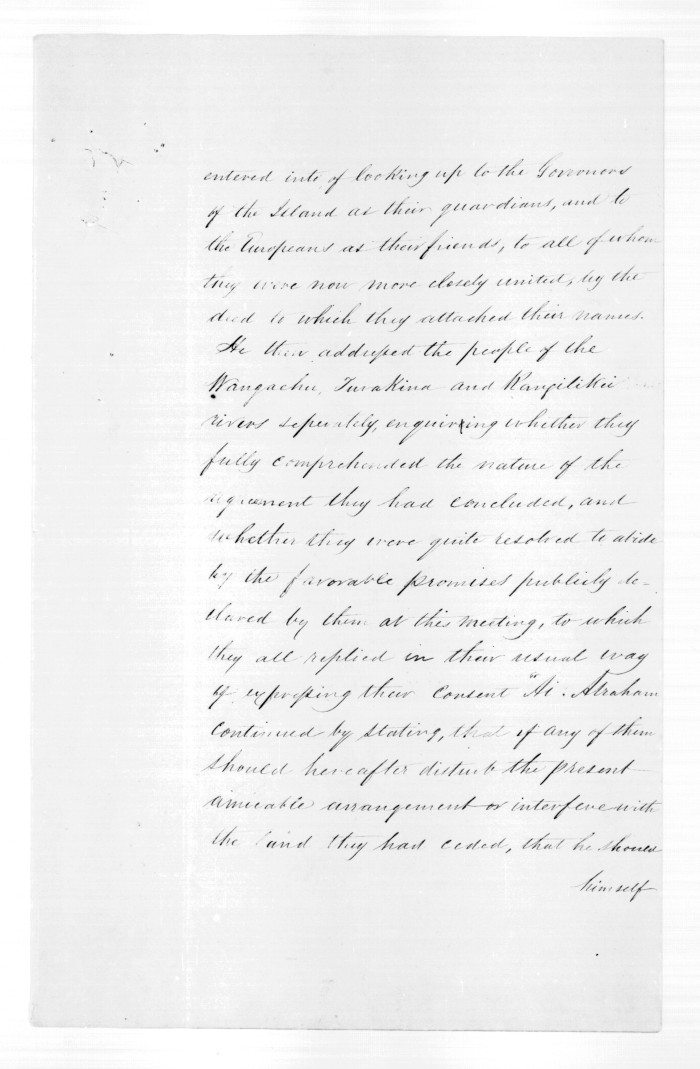 entered into of looking up to the Governors
of the Island as their guardians, and to
the Europeans as their friends, to all of whom
they were now more closely united, by the
deed to which they attached their names.
He then addressed the people of the
Wangaehu, Turakina and Rangitikei
rivers seperately, enquiring whether they
fully comprehended the nature of the
agreement they had concluded, and
whether they were quite resolved to abide
by the favorable promises publicly de-
clared by them at this meeting, to which
they all replied in their usual way
of expressing their consent "Ai. Abraham
continued by stating, that if any of them
should hereafter disturb the present
amicable arrangement or interfere with
the land they had ceded, that he should
himself